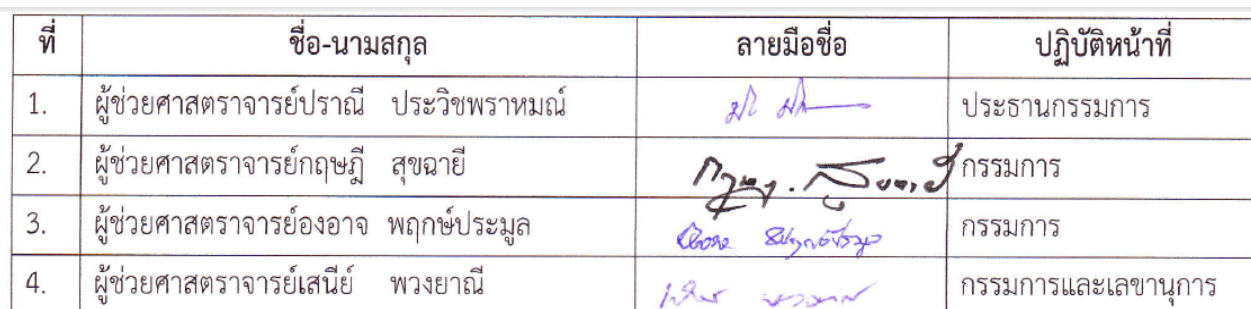 ที่ ชื่อ-นามสกุล ลายมือชื่อ ปฏิบัติหน้าที่
1. ผู้ช่วยศาสตราจารย์ปราณี ประวิชพราหมณ์ ประธานกรรมการ
2. ผู้ช่วยศาสตราจารย์กฤษฎี สุขฉายี กรรมการ
3. ผู้ช่วยศาสตราจารย์องอาจ พฤกษ์ประมูล กรรมการ
4. ผู้ช่วยศาสตราจารย์เสนีย์ พวงยาณี กรรมการและเลขานุการ